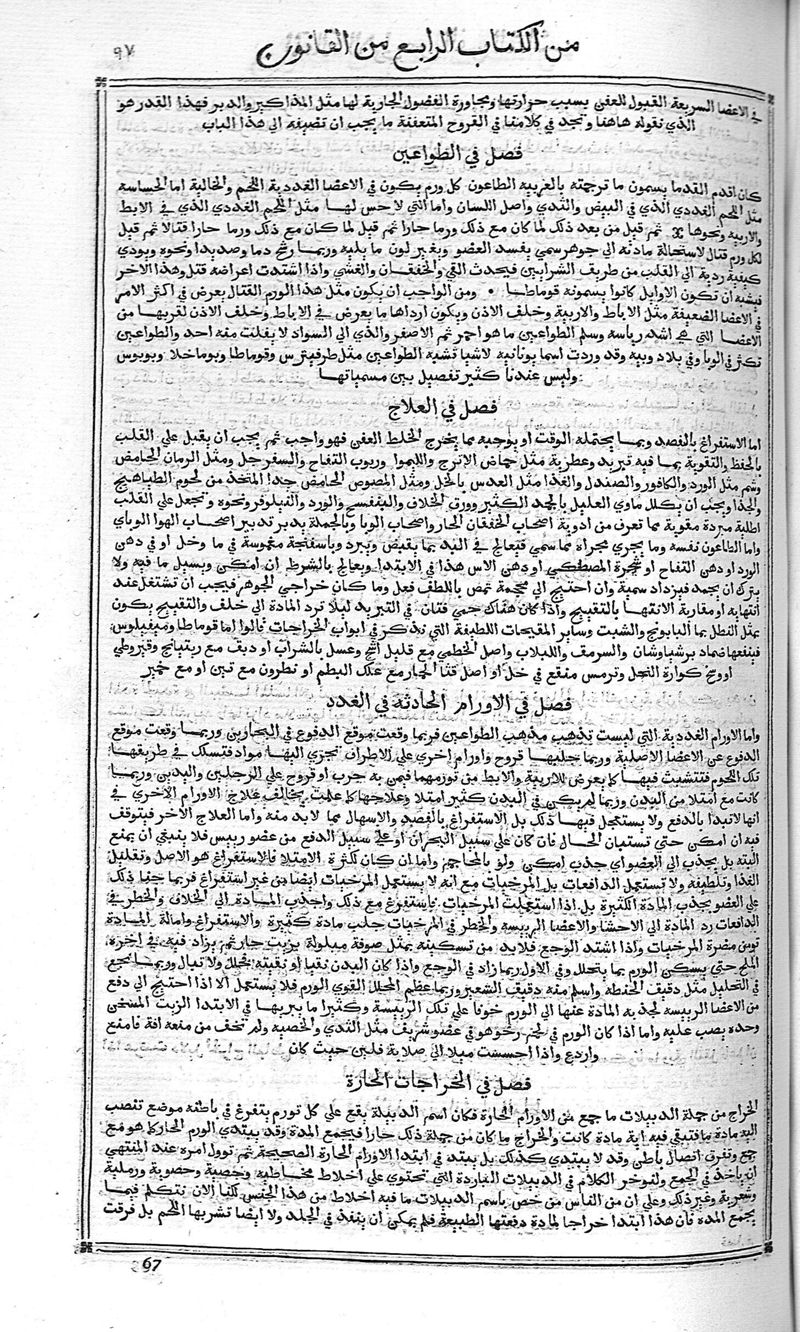 من الكتاب الرابع من القانون
٩٧
في الاعضا السريعة القبول للعفن بسبب حرارتها ومجاورة الفضول الحارية لها مثل المذاكير والدبر فهذا القدر هو
الذي نقوله هاهنا وتجد في كلامنا في القروح المتعفنة ما يجب ان تضيفه الى هذا الباب
فصل في الطواعين
كان اقدم القدما يسمون ما ترجمته بالعربية الطاعون كل ورم يكون في الاعضا الغددية اللحم والخالية اما الحساسة
مثل اللحم الغددي الذي في البيض والثدي واصل اللسان واما التي لا حس لها مثل اللحم الغددي الذي في الابط
والاربية ونحوها ثم قيل من بعد ذلك لما كان مع ذلك ورما حارا ثم قيل لما كان مع ذلك ورما حارا قتالا ثم قيل
لكل ورم قتال لاستحالة مادته الى جوهر سمي يفسد العضو ويغير لون ما يليه وربما رشح دما وصديدا ونحوه ويودي
كيفية ردية الى القلب من طريق الشرايين فيحدث القي والخفقان والغشي واذا اشتدت اعراضه قتل وهذا الاخر
فيشبه ان تكون الاوايل كانوا يسمونه قوماطا ومن الواجب ان يكون مثل هذا الورم القتال يعرض في اكثر الامر
في الاعضا الضعيفة مثل الاباط والاربية وخلف الاذن ويكون ارداها ما يعرض في الاباط وخلف الاذن لقربها من
الاعضا التي هي اشد رياسة وسلم الطواعين ما هو احمر ثم الاصفر والذي الى السواد لا يفلت منه احد والطواعين
تكثر في الوبا وفي بلاد وبية وقد وردت اسما يونانية لاشيا تشبه الطواعين مثل طرفيترس وقوماطا وبوماخلا وبوبوس
وليس عندنا كثير تفصيل بين مسمياتها
فصل في العلاج
اما الاستفراغ بالفصد وبما يحتمله الوقت او يوجبه مما يخرج الخلط العفن فهو واجب ثم يجب ان يقبل على القلب
بالحفظ والتقوية بما فيه تبريد وعطرية مثل حماض الاترج والليموا وربوب التفاح والسفرجل ومثل الرمان الحامض
وشم مثل الورد والكافور والصندل والغذا مثل العدس بالخل ومثل المصوص الحامض جدا المتخذ من لحوم الطياهيج
والجدا ويجب ان يكلل ماوي العليل بالجمد الكثير وورق الخلاف والبنفسج والورد والنيلوفر ونحوه وتجعل على القلب
اطلية مبردة مقوية مما تعرف من ادوية اصحاب الخفقان الحار واصحاب الوبا وبالجملة يدبر تدبير اصحاب الهوا الوباي
واما الطاعون نفسه وما يجري مجراه مما سمي فيعالج في البد بما يقبض ويبرد وباسفنجة مغموسة في ما وخل او في دهن
الورد او دهن التفاح او شجرة المصطكي او دهن الاس هذا في الابتدا ويعالج بالشرط ان امكن ويسيل ما فيه ولا
يترك ان يجمد فيزداد سمية وان احتيج الى محجمة تمص باللطف فعل وما كان خراجي الجوهر فيجب ان تشتغل عند
انتهايه او مقاربة الانتها بالتقييح واذا كان هناك حمى فتان في التبريد ليلا ترد المادة الى خلف والتقييح يكون
بمثل النطل بما البابونج والشبت وساير المقيحات اللطيفة التي تذكر في ابواب الخراجات قالوا اما قوماطا وميفيلوس
فينفعها ضماد برشياوشان والسرمق واللبلاب واصل الخطمي مع قليل اشج وعسل بالشراب او دبق مع ريتيانج وقيروطي
او وسخ كوارة النحل وترمس منقع في خل او اصل قثا الحمار مع علك البطم او نطرون مع تين او مع خمير
فصل في الاورام الحادثة في الغدد
واما الاورام الغددية التي ليست تذهب مذهب الطواعين فربما وقعت موقع الدفوع في البحارين وربما وقعت موقع
الدفوع عن الاعضا الاصلية وربما جلبها قروح واورام اخري على الاطراف تجري اليها مواد فتسلك في طريقها
تلك اللحوم فتتشبث فيها كما يعرض للاربية والابط من تورمهما فيمن به جرب او قروح على الرجلين واليدين وربما
كانت مع امتلا من البدن وربما لم يكن في البدن كثير امتلا وعلاجها كما علمت يخالف علاج الاورام الاخري في
انها لا تبدا بالدفع ولا يستعجل فيها ذلك بل الاستفراغ بالفصد والاسهال مما لا بد منه واما العلاج الاخر فيتوقف
فيه ان امكن حتى تستبان الحال فان كان على سبيل البحران او على سبيل الدفع من عضو رييس فلا ينبغي ان يمنع
البتة بل يجذب الى العضو اي جذب امكن ولو بالمحاجم واما ان كان لكثرة الامتلا فالاستفراغ هو الاصل وتقليل
الغذا وتلطيفه ولا تستعمل الدافعات بل المرخيات مع انه لا يستعمل المرخيات ايضا من غير استفراغ فربما جنا ذلك
على العضو بجذب المادة الكثيرة بل اذا استعملت المرخيات فاستفرغ مع ذلك واجذب المادة الى الخلاف والخطر في
الدافعات رد المادة الى الاحشا والاعضا الرييسة والخطر في المرخيات جلب مادة كثيرة والاستفراغ وامالة المادة
تومن مضرة المرخيات واذا اشتد الوجع فلا بد من تسكينه بمثل صوفة مبلولة بزيت حار ثم يزاد فيه في اخره
الملح حتى يسكن الورم بما يتحلل وفي الاول ربما زاد في الوجع واذا كان البدن نقيا او نقيته فحلل ولا تبال وربما نجع
في التحليل مثل دقيق الحنطة واسلم منه دقيق الشعير وربما عظم المحلل القوي الورم فلا يستعمل الا اذا احتيج الى دفع
من الاعضا الرييسة لجذبه المادة عنها الى الورم خوفا على تلك الرييسة وكثيرا ما يبريها في الابتدا الزيت المسخن
وحده يصب عليه واما اذا كان الورم في لحم رخو هو في عضو شريف مثل الثدي والخصية ولم تخف من منعه افة فامنع
واردع واذا احسست ميلا الى صلابة فلين حيث كان
فصل في الخراجات الحارة
الخراج من جملة الدبيلات ما جمع من الاورام الحارة فكان اسم الدبيلة يقع على كل تورم يتفرغ في باطنه موضع تنصب
اليه مادة ما فتبقي فيه اية مادة كانت والخراج ما كان من جملة ذلك حارا فيجمع المدة وقد يبتدي الورم الحار كما هو مع
جمع وتفرق اتصال باطن وقد لا يبتدي كذلك بل يبتد في ابتدا الاورام الحارة الصحيحة ثم توول امره عند المنتهي
ان ياخذ في الجمع ولنوخر الكلام في الدبيلات الباردة التي تحتوي على اخلاط مخاطية وجصية وحصوية ورملية
وشعرية وغير ذلك وعلى ان من الناس من خص باسم الدبيلات ما فيه اخلاط من هذا الجنس لكنا الان نتكلم فيما
يجمع المدة فان هذا ابتدا خراجا لمادة دفعتها الطبيعة فلم يمكن ان ينفذ في الجلد ولا ايضا تشربها اللحم بل فرقت
67